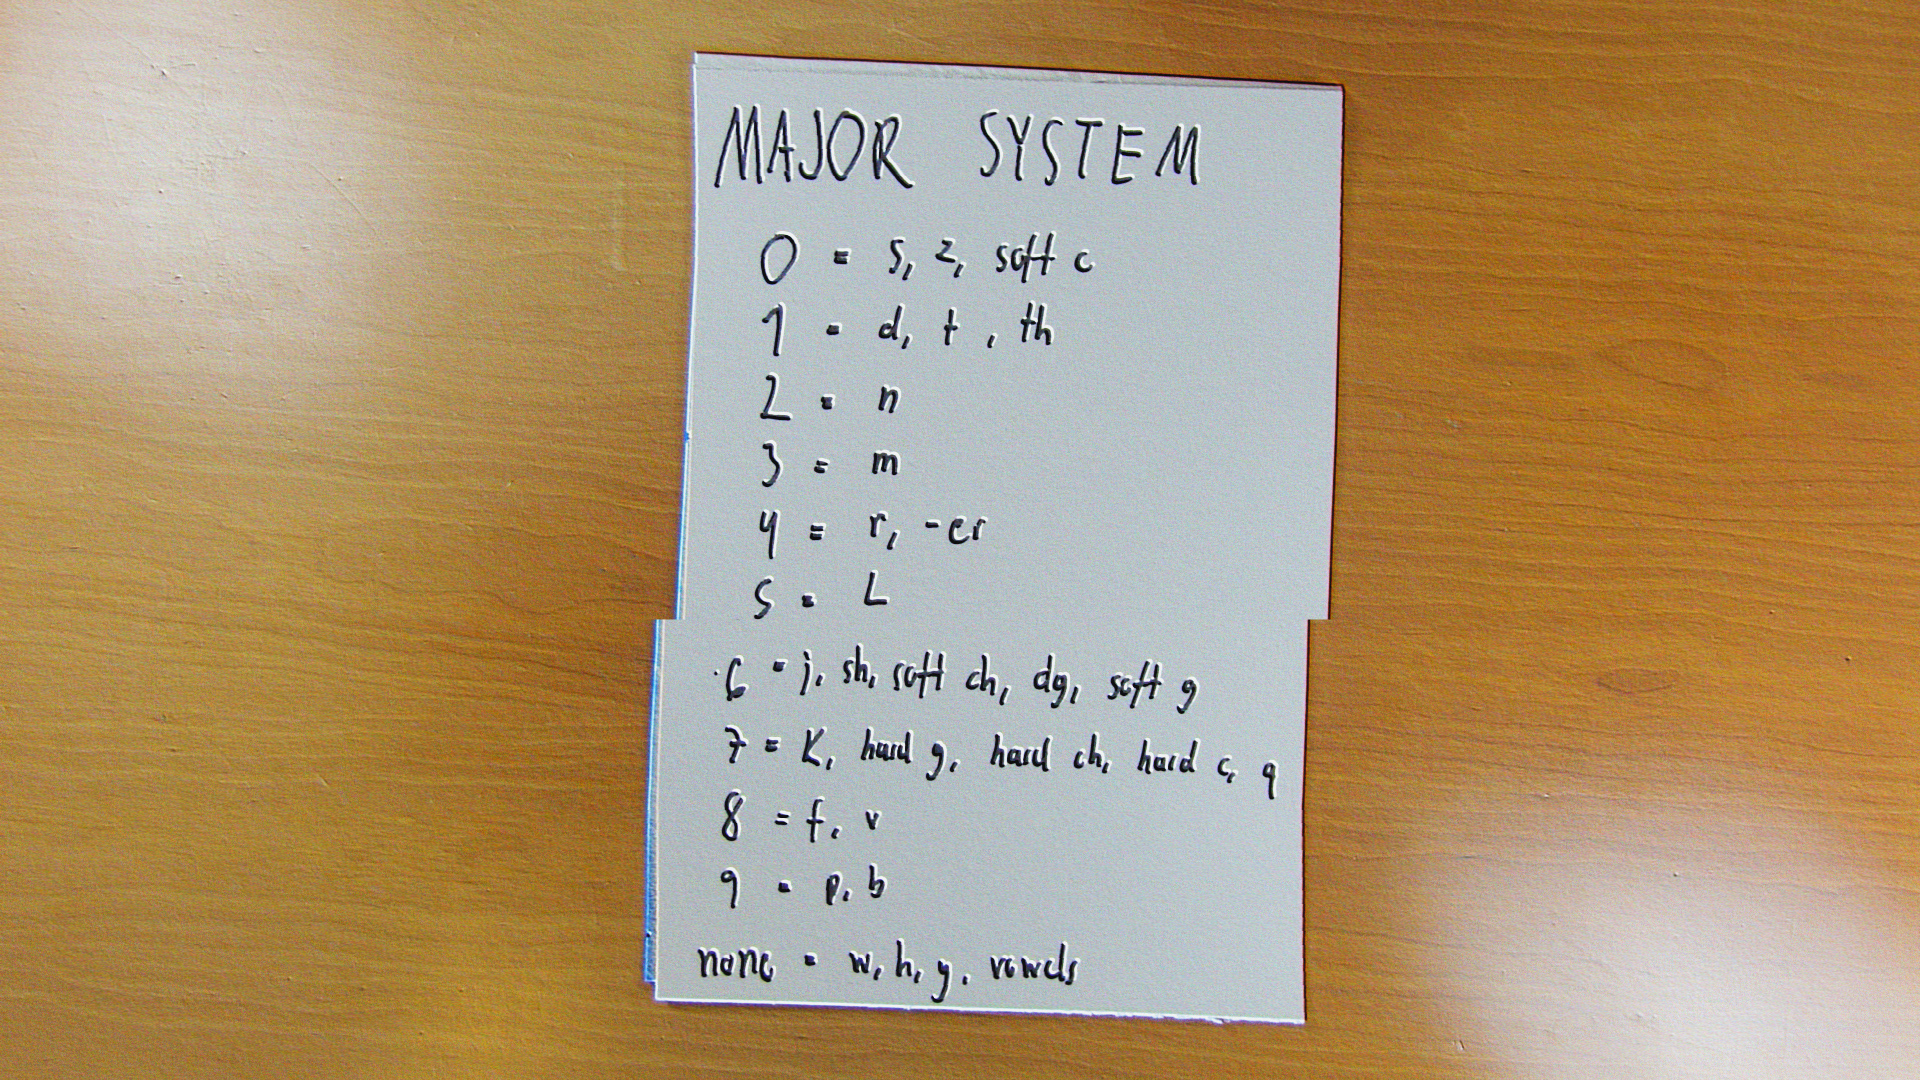 MAJOR SYSTEM
0 = s, z, soft c
1 = d, t, th
2 = n
3 = m
4 = r, -er
5 = L
6 = j, sh, soft ch, dg, soft g
7 = K, hard g, hard ch, hard c, q
8 = f, v
9 = p, b
none = w, h, y, vowels